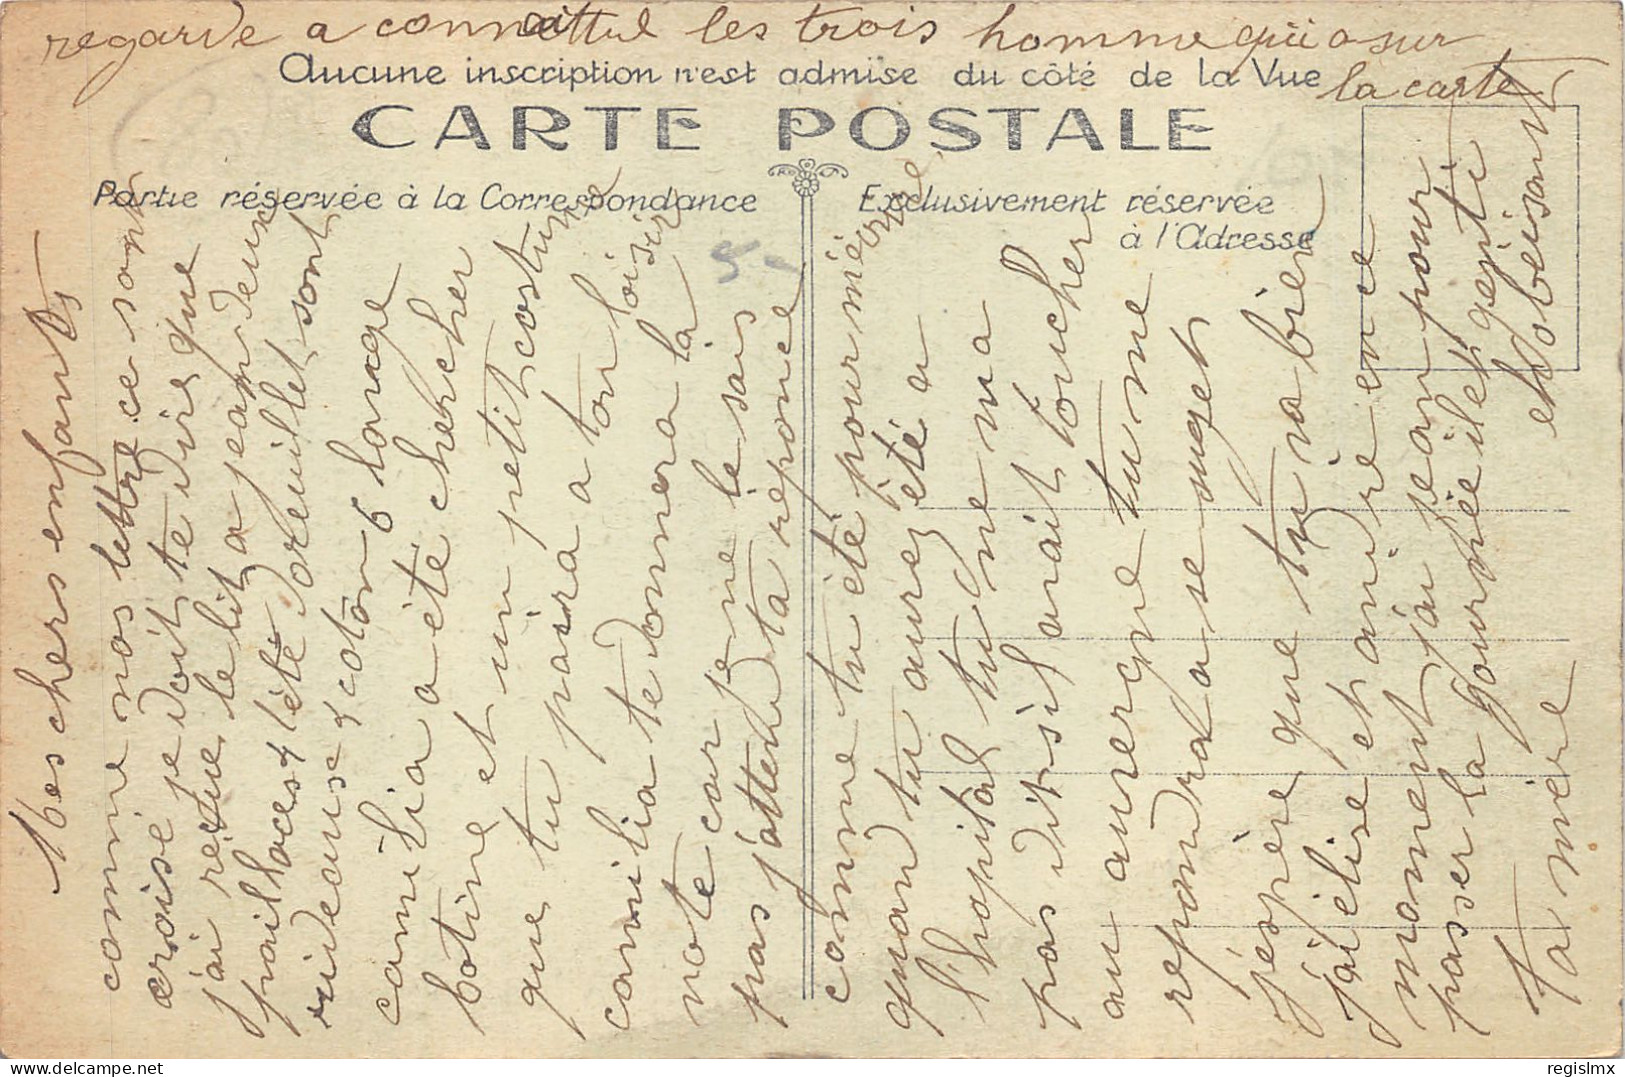 regarde a connaittre les trois homme qui a sur
la carte
Aucune inscription n'est admise du côté de la Vue
CARTE POSTALE
Partie réservée à la Correspondance
Exclusivement réservée
à l'Adresse
5-
Mes chers enfants
comme nos lettre ce sont
croisé je doit te dire que
j'ai reçue le lit a jean deux
paillaces l'été oreuillet sont
rideaus coton 6 lange
camilia a été chercher
botine et un petit costume
que tu paira a ton loisir
camilia te donnera la
note car je ne le sais
pas j'attend ta reponce
comme tu été pour miéorne
quand tu aurez été a
l'hopital tu ne m'a
pas dit s'il avait toucher
au auvergne tu me
repondra se suget
j'espère que tu va bien
j'ai élise et andré en ce
moment j'ai jean pour
passer la journée il et genti
et obeisant
Ta mère
regislmx